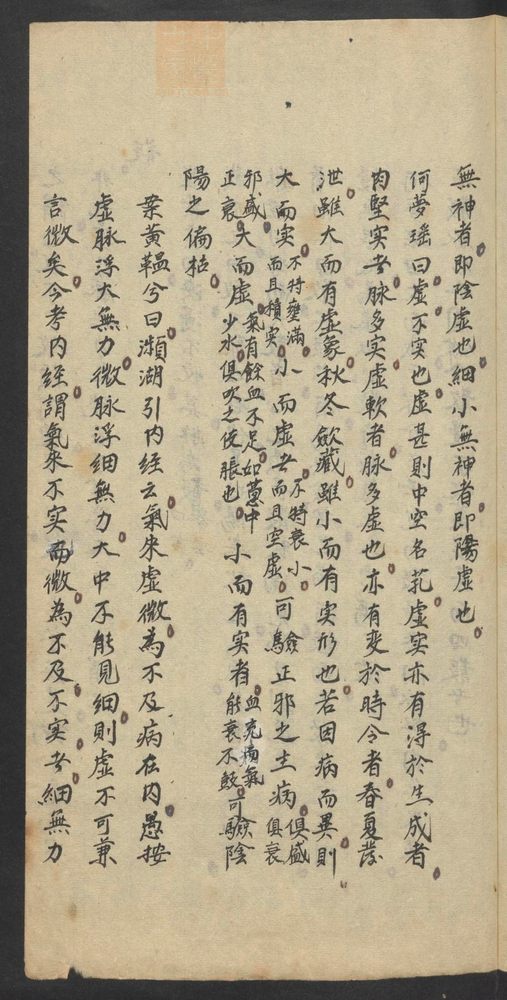 無神者即陰虛也細小無神者即陽虛也
何夢瑶曰虛不实也虛甚則中空名芤虛实亦有得於生成者
肉堅实者脉多实虛軟者脉多虛也亦有变於時令者春夏發
泄雖大而有虛象秋冬歛藏雖小而有实形也若因病而異則
大而实不特壅滿而且積实小而虛者不特衰小而且空虛可驗正邪之主病俱盛俱衰
邪盛正衰大而虛氣有餘血不足如葱中少水俱吹之使脹也小而有实者血充满氣能衰不鼓可驗陰
陽之偏枯
案黄韞兮曰瀕湖引内经云氣來虛微為不及病在内愚按
虛脉浮大無力微脉浮细無力大中不能見细則虛不可兼
言微矣今考内经謂氣來不实而微為不及不实者细無力